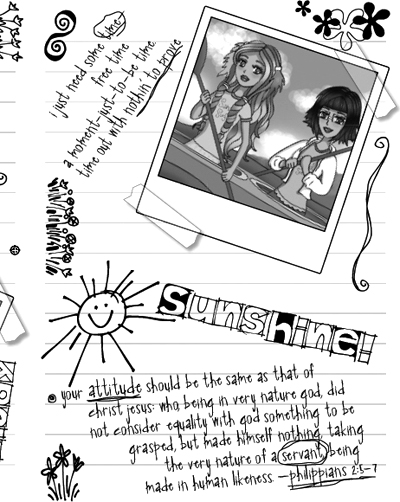 i just need some time
free time
a moment-just-to-be time
time out with nothin to prove
sunshine!
your attitude should be the same as that of
christ jesus: who, being in very nature god, did
not consider equality with god something to be
grasped, but made himself nothing, taking
the very nature of a servant, being
made in human likeness. —philippians 2:5–7